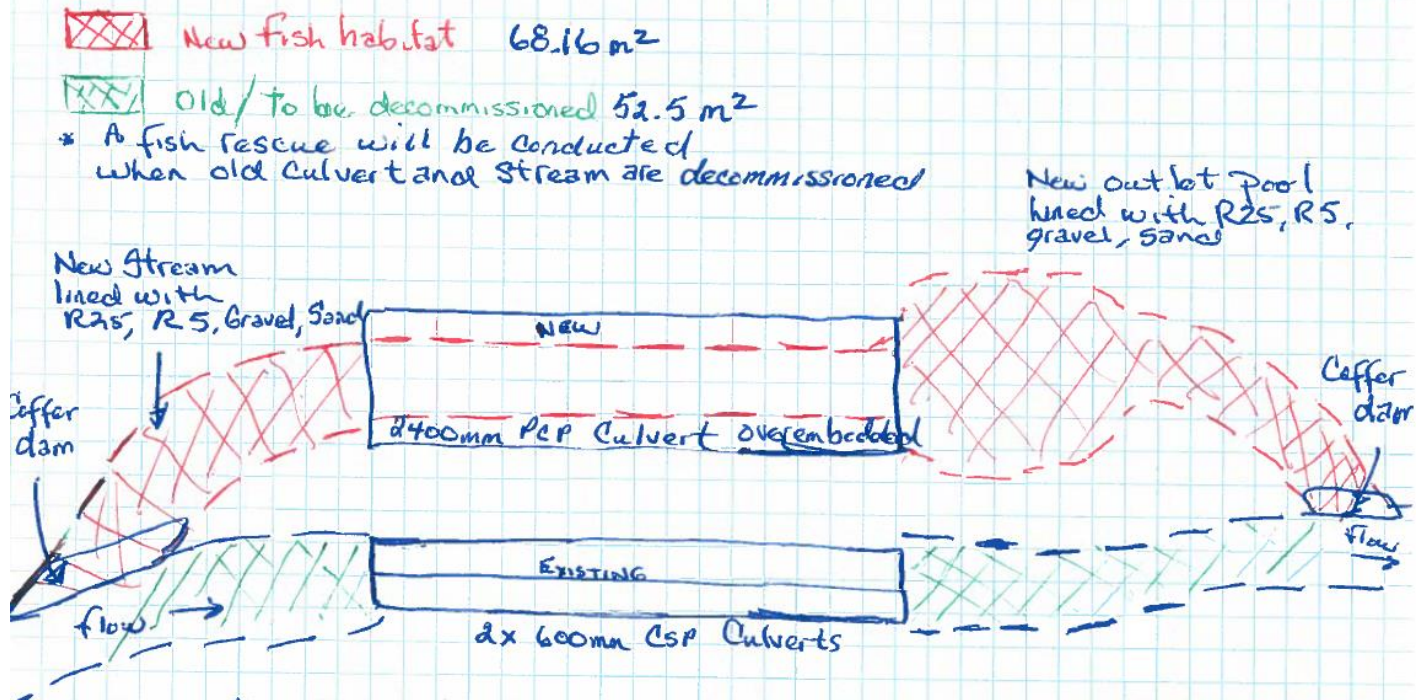 New fish habitat 68.16 m²
Old/to be decommissioned 52.5 m²
* A fish rescue will be conducted
when old Culvert and Stream are decommissioned
New outlet pool
lined with R25, R5,
gravel, Sand
New Stream
lined with
R25, R5, Gravel, Sand
NEW
2400mm PCP Culvert overembedded
Coffer
dam
Coffer
dam
EXISTING
flow
flow
2x 600mm CSP Culverts